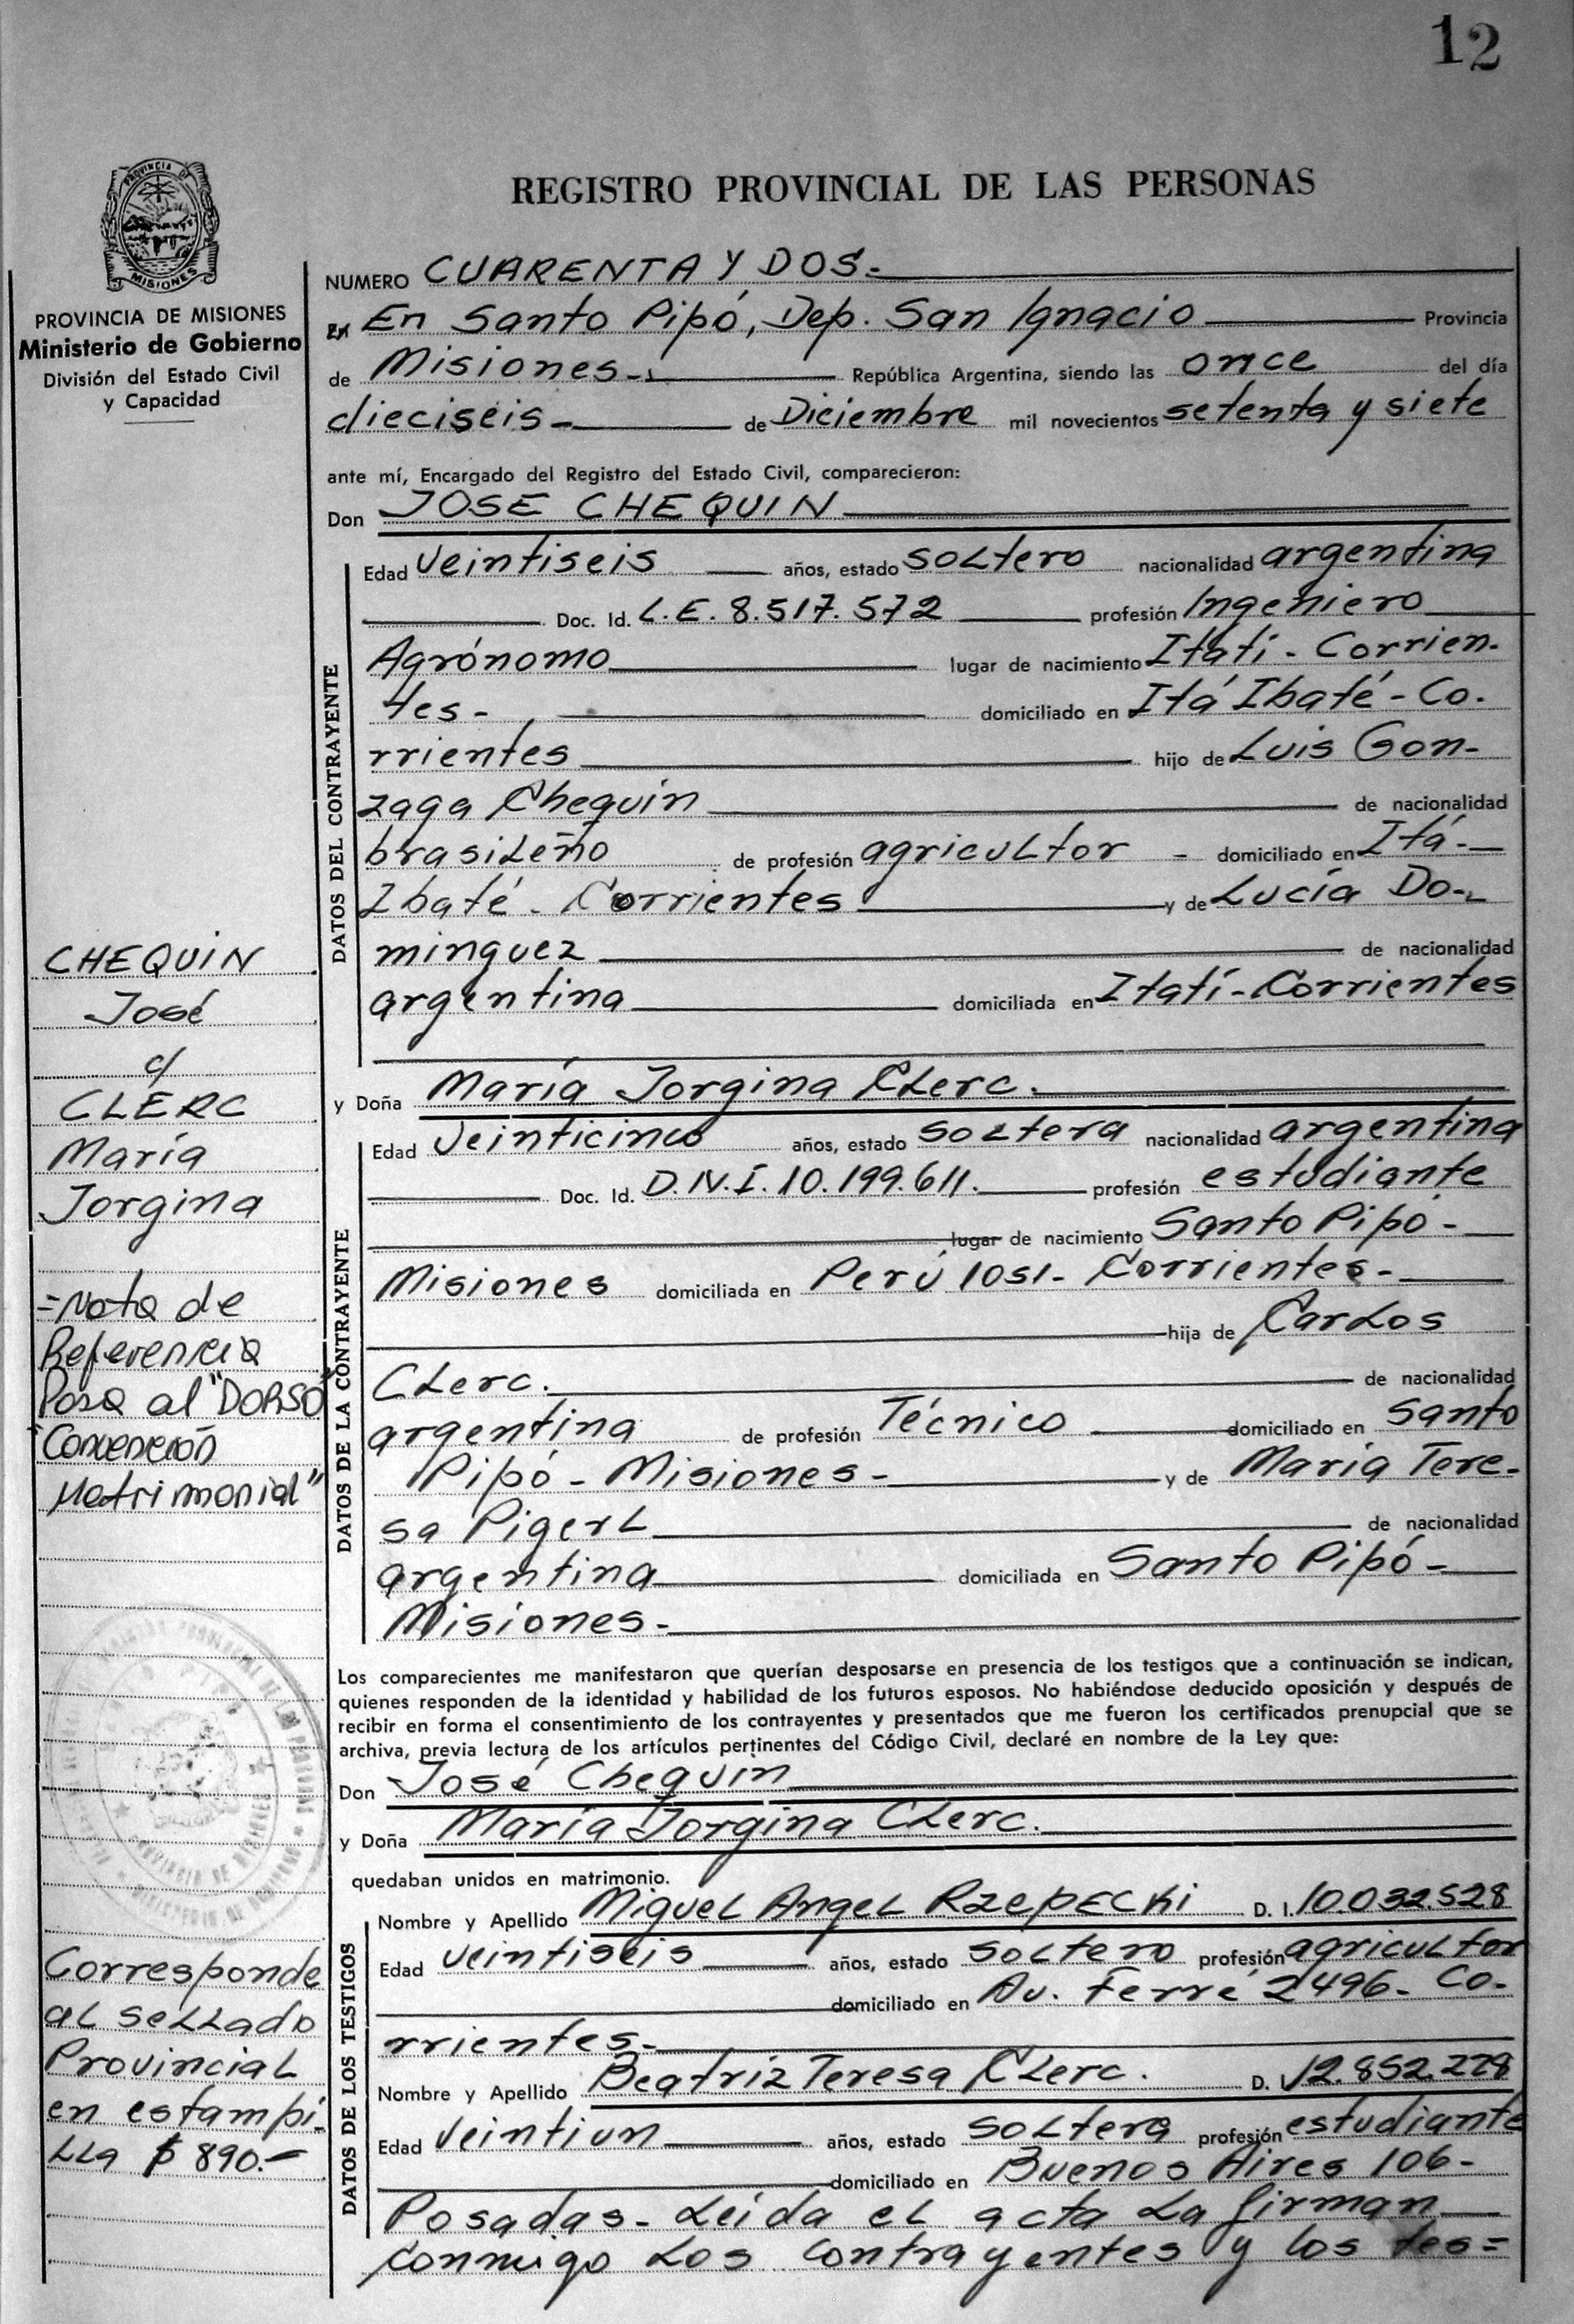 12
PROVINCIA DE
MISIONES
REGISTRO PROVINCIAL DE LAS PERSONAS
PROVINCIA DE MISIONES
Ministerio de Gobierno
División del Estado Civil
y Capacidad
NUMERO CUARENTA Y DOS.-
En En Santo Pipó, Dep. San Ignacio Provincia
de Misiones.- República Argentina, siendo las once del día
dieciseis- de Diciembre mil novecientos setenta y siete
ante mí, Encargado del Registro del Estado Civil, comparecieron:
Don JOSE CHEQUIN
DATOS DEL CONTRAYENTE
Edad veintiseis años, estado soltero nacionalidad argentina
Doc. Id. L.E. 8.517.572 profesión Ingeniero
Agrónomo lugar de nacimiento Itatí - Corrien-
tes- domiciliado en Itá Ibaté - Co.
rrientes hijo de Luis Gon-
zaga Chequin de nacionalidad
brasileño de profesión agricultor - domiciliado en Itá-
Ibaté - Corrientes y de Lucía Do-
minguez de nacionalidad
argentina domiciliada en Itatí-Corrientes
y Doña María Jorgina Clerc.
DATOS DE LA CONTRAYENTE
Edad veinticinco años, estado soltera nacionalidad argentina
Doc. Id. D.N.I. 10.199.611. profesión estudiante
lugar de nacimiento Santo Pipó -
Misiones domiciliada en Perú 1051- Corrientes-
hija de Carlos
Clerc. de nacionalidad
argentina de profesión Técnico domiciliado en Santo
Pipó - Misiones- y de María Tere-
sa Pigerl de nacionalidad
argentina domiciliada en Santo Pipó-
Misiones-
Los comparecientes me manifestaron que querían desposarse en presencia de los testigos que a continuación se indican,
quienes responden de la identidad y habilidad de los futuros esposos. No habiéndose deducido oposición y después de
recibir en forma el consentimiento de los contrayentes y presentados que me fueron los certificados prenupcial que se
archiva, previa lectura de los artículos pertinentes del Código Civil, declaré en nombre de la Ley que:
Don José Chequin
y Doña María Jorgina Clerc.
quedaban unidos en matrimonio.
DATOS DE LOS TESTIGOS
Nombre y Apellido Miguel Angel Rzepecki D. I. 10.032.528
Edad veintiseis años, estado soltero profesión agricultor
domiciliado en Av. Ferré 2496- Co-
rrientes-
Nombre y Apellido Beatriz Teresa Clerc. D. I. 12.852.228
Edad veintiun años, estado soltera profesión estudiante
domiciliado en Buenos Aires 106-
Posadas- Leída el acta la firman
conmigo los contrayentes y los tes=
CHEQUIN
José
c/
CLERC
María
Jorgina
=Nota de
Referencia
Pasa al "DORSO"
"Convención
Matrimonial"
Corresponde
al sellado
Provincial
en estampi-
lla $ 890.-